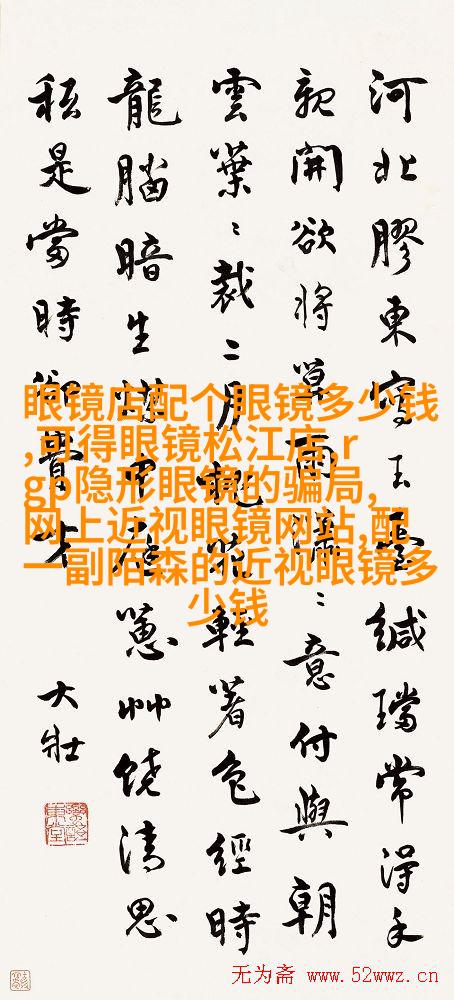 河北膠東寫玉臺緘璫常得手
親開欲將雨〻意付與朝
雲葉〻裁二月靚妝輕著色經時
龍腦暗生蔥艸饒清思
秖是當時才
大壯
眼镜店配个眼镜多少钱
,可得眼镜松江店,r
gp隐形眼镜的骗局,
网上近视眼镜网站,配
一副陌森的近视眼镜多
少钱
无为斋 www.52wwz.cn